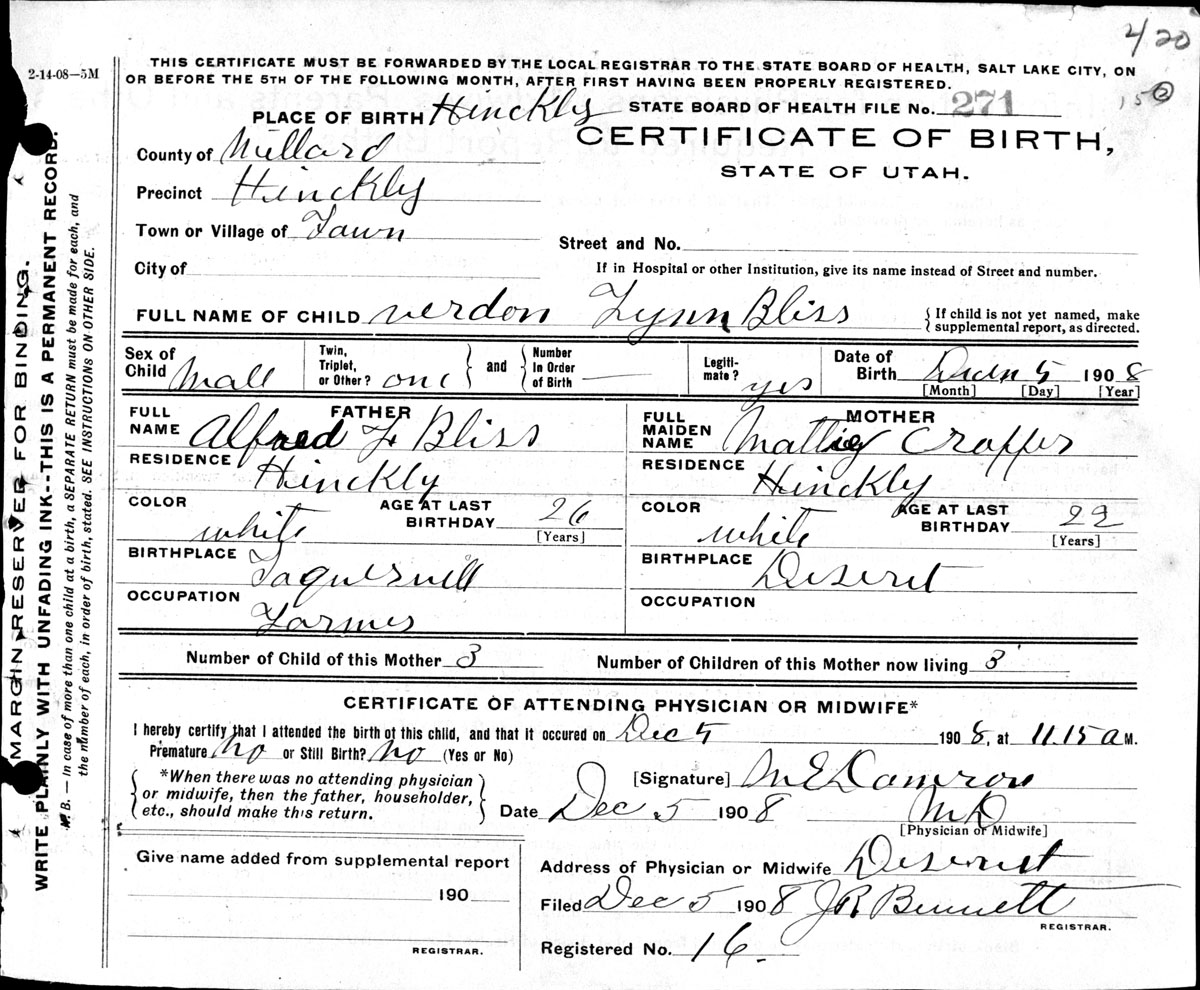 4/20
2-14-08—5M
THIS CERTIFICATE MUST BE FORWARDED BY THE LOCAL REGISTRAR TO THE STATE BOARD OF HEALTH, SALT LAKE CITY, ON
OR BEFORE THE 5TH OF THE FOLLOWING MONTH, AFTER FIRST HAVING BEEN PROPERLY REGISTERED.
15 2
PLACE OF BIRTH Hinckly STATE BOARD OF HEALTH FILE No. 271
CERTIFICATE OF BIRTH,
STATE OF UTAH.
County of Millard
Precinct Hinckly
Town or Village of Town
Street and No.
City of
If in Hospital or other Institution, give its name instead of Street and number.
FULL NAME OF CHILD verdon Lynn Bliss { If child is not yet named, make
supplemental report, as directed.
Sex of Child Male Twin, Triplet, or Other? one } and { Number In Order of Birth — Legiti-mate? yes Date of Birth 5 1908
[Month] [Day] [Year]
FATHER
FULL NAME Alfred F Bliss
RESIDENCE Hinckly
COLOR white AGE AT LAST BIRTHDAY 26
[Years]
BIRTHPLACE
OCCUPATION Farmer
MOTHER
FULL MAIDEN NAME Mattie Cropper
RESIDENCE Hinckly
COLOR white AGE AT LAST BIRTHDAY 22
[Years]
BIRTHPLACE Deseret
OCCUPATION
Number of Child of this Mother 3 Number of Children of this Mother now living 3
CERTIFICATE OF ATTENDING PHYSICIAN OR MIDWIFE*
I hereby certify that I attended the birth of this child, and that it occured on Dec 5 1908, at 11.15 a M.
Premature No or Still Birth? No (Yes or No)
*When there was no attending physician
or midwife, then the father, householder,
etc., should make this return.
[Signature] M E Damron
Date Dec 5 1908 M D
[Physician or Midwife]
Give name added from supplemental report
190
REGISTRAR.
Address of Physician or Midwife Deseret
Filed Dec 5 1908 J R Bennett
REGISTRAR.
Registered No. 16.
MARGIN RESERVED FOR BINDING.
WRITE PLAINLY WITH UNFADING INK--THIS IS A PERMANENT RECORD.
N. B. — In case of more than one child at a birth, a SEPARATE RETURN must be made for each, and
the number of each, in order of birth, stated. SEE INSTRUCTIONS ON OTHER SIDE.